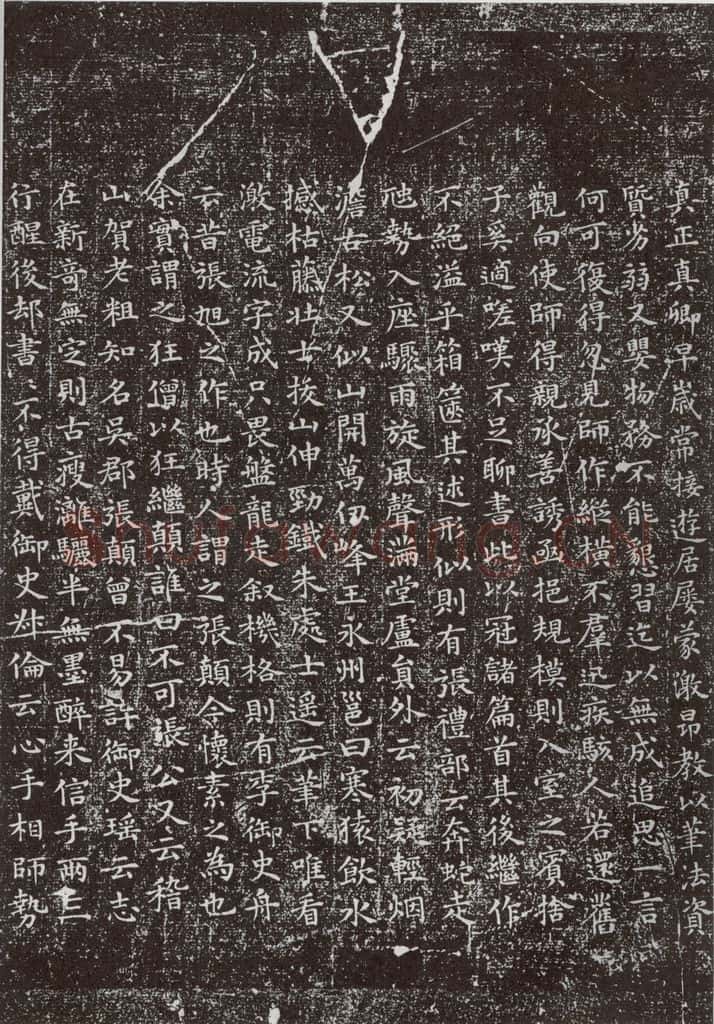 真正真卿早歲常接遊居屢蒙激昂教以筆法資
質劣弱又嬰物務不能懇習迄以無成追思一言
何可復得忽見師作縱橫不羣迅疾駭人若還舊
觀向使師得親承善誘亟挹規模則入室之賓捨
子奚適嗟嘆不足聊書此以冠諸篇首其後繼作
不絕溢乎箱篋其述形似則有張禮部云奔蛇走
虺勢入座驟雨旋風聲滿堂盧員外云初疑輕烟
澹古松又似山開萬仞峰王永州邕曰寒猿飲水
撼枯藤壯士拔山伸勁鐵朱處士遥云筆下唯看
激電流字成只畏盤龍走叙機格則有李御史舟
云昔張旭之作也時人謂之張顛今懷素之為也
余實謂之狂僧以狂繼顛誰曰不可張公又云稽
山賀老粗知名吳郡張顛曾不易許御史瑶云志
在新奇無定則古瘦灕驪半無墨醉来信手兩三
行醒後却書〻不得戴御史叔倫云心手相師勢
Shufawang.CN